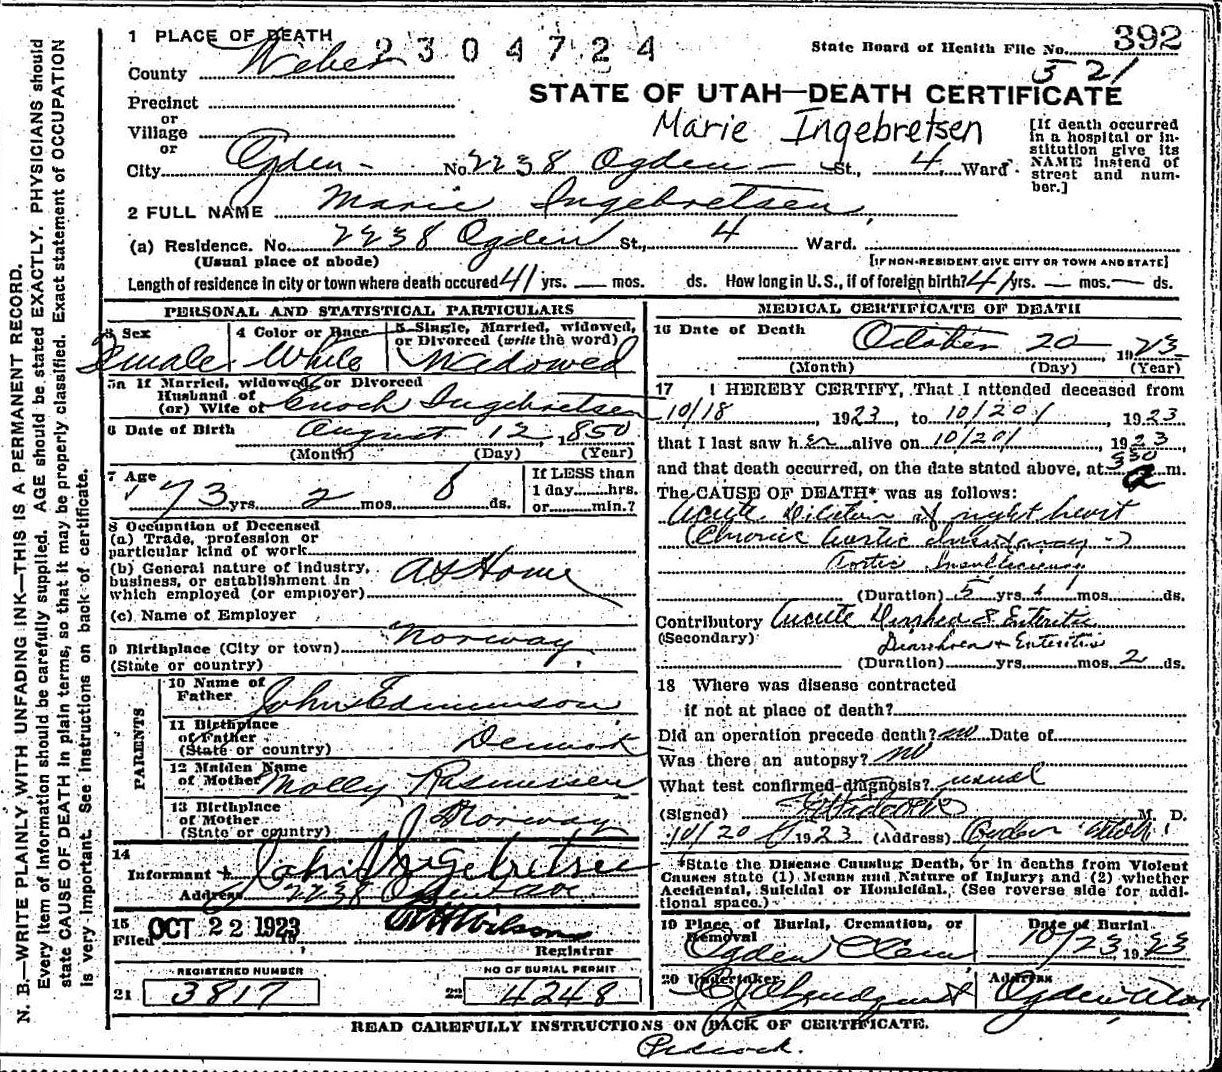 1 PLACE OF DEATH
2304724
State Board of Health File No. 392
County Weber
521
STATE OF UTAH—DEATH CERTIFICATE
Precinct
or
Village
or
Marie Ingebretsen
[If death occurred in a hospital or institution give its NAME instead of street and number.]
City Ogden - No. 2238 Ogden - St., 4, Ward
2 FULL NAME Marie Ingebretsen,
(a) Residence. No. 2238 Ogden St., 4 Ward.
(Usual place of abode) [IF NON-RESIDENT GIVE CITY OR TOWN AND STATE]
Length of residence in city or town where death occured 41 yrs. — mos. ds. How long in U.S., if of foreign birth? 41 yrs. — mos. — ds.
PERSONAL AND STATISTICAL PARTICULARS
3 Sex
Female
4 Color or Race
White
5 Single, Married, widowed,
or Divorced (write the word)
Widowed
5a If Married, widowed, or Divorced
Husband of
(or) Wife of Enoch Ingebretsen
6 Date of Birth August 12, 1850
(Month) (Day) (Year)
7 Age
73 yrs. 2 mos. 8 ds.
If LESS than
1 day......hrs.
or......min.?
8 Occupation of Deceased
(a) Trade, profession or
particular kind of work
(b) General nature of industry,
business, or establishment in
which employed (or employer)
At Home
(c) Name of Employer
9 Birthplace (City or town) Norway
(State or country)
PARENTS
10 Name of
Father John Edmunson
11 Birthplace
of Father
(State or country) Denmark
12 Maiden Name
of Mother Molly Rasmussen
13 Birthplace
of Mother
(State or country) Norway
14
Informant John Ingebretsen
Address 2238 Ogden Ave
15
Filed OCT 22 1923 19
Wilson
Registrar
REGISTERED NUMBER
21 3817
NO OF BURIAL PERMIT
22 4248
MEDICAL CERTIFICATE OF DEATH
16 Date of Death October 20 1923
(Month) (Day) (Year)
17 I HEREBY CERTIFY, That I attended deceased from
10/18, 1923 to 10/20/ 1923
that I last saw her alive on 10/20/ 1923
and that death occurred, on the date stated above, at 330 a m.
The CAUSE OF DEATH* was as follows:
Acute Dilation of right heart
Chronic Aortic
Aortic Insufficiency
(Duration) 5 yrs. mos. ds.
Contributory Acute Diarrhea & Enteritis
(Secondary) Diarrhoea + Enteritis
(Duration) yrs. mos. 2 ds.
18 Where was disease contracted
if not at place of death?
Did an operation precede death? no Date of
Was there an autopsy? no
What test confirmed diagnosis? usual
(Signed) M. D.
10/20 1923 (Address) Ogden Utah.
*State the Disease Causing Death, or in deaths from Violent
Causes state (1) Means and Nature of Injury; and (2) whether
Accidental, Suicidal or Homicidal. (See reverse side for additional space.)
19 Place of Burial, Cremation, or
Removal
Ogden Cem
Date of Burial
10/23, 1923
20 Undertaker
Address
Ogden Utah
READ CAREFULLY INSTRUCTIONS ON BACK OF CERTIFICATE.
N. B.—WRITE PLAINLY WITH UNFADING INK—THIS IS A PERMANENT RECORD.
Every item of information should be carefully supplied. AGE should be stated EXACTLY. PHYSICIANS should
state CAUSE OF DEATH in plain terms, so that it may be properly classified. Exact statement of OCCUPATION
is very important. See instructions on back of certificate.